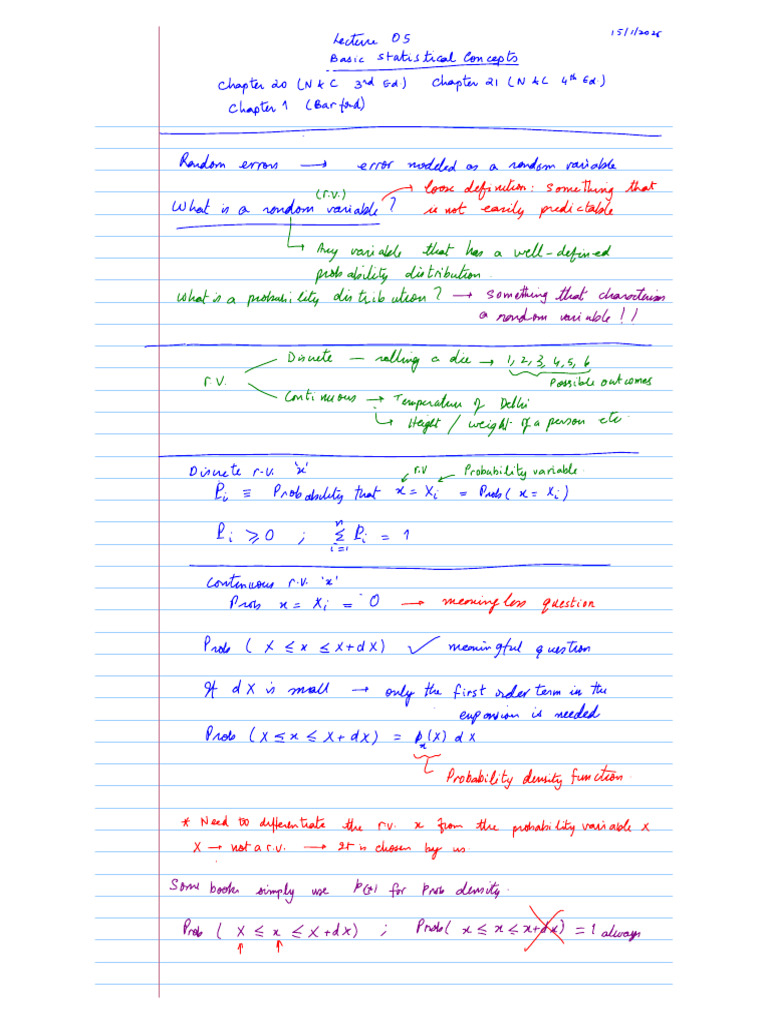 Lecture 05
15/1/2026
Basic Statistical Concepts
Chapter 20 (N & C 3rd Ed) Chapter 21 (N & C 4th Ed.)
Chapter 1 (Barford)
Random errors → error modeled as a random variable
(r.v.) → loose definition: something that
What is a random variable? is not easily predictable
→ Any variable that has a well-defined
probability distribution.
What is a probability distribution? → something that characterises
a random variable!!
Discrete — rolling a die → 1, 2, 3, 4, 5, 6
r.v. Possible outcomes
Continuous → Temperature of Delhi
→ Height / weight of a person etc.
Discrete r.v. 'x' r.v Probability variable
P_i ≡ Probability that x = X_i = Prob( x = X_i )
P_i ≥ 0 ; Σ_{i=1}^{n} P_i = 1
Continuous r.v. 'x'
Prob x = X_i = 0 → meaningless question
Prob ( X ≤ x ≤ X+dX ) ✓ meaningful question
If dX is small → only the first order term in the
expansion is needed
Prob ( X ≤ x ≤ X + dX ) = p_x(X) dX
Probability density function.
* Need to differentiate the r.v. x from the probability variable X
X → not a r.v. → It is chosen by us.
Some books simply use p(x) for prob density.
Prob ( X ≤ x ≤ X+dX ) ; Prob( x ≤ x ≤ x+dx ) = 1 always